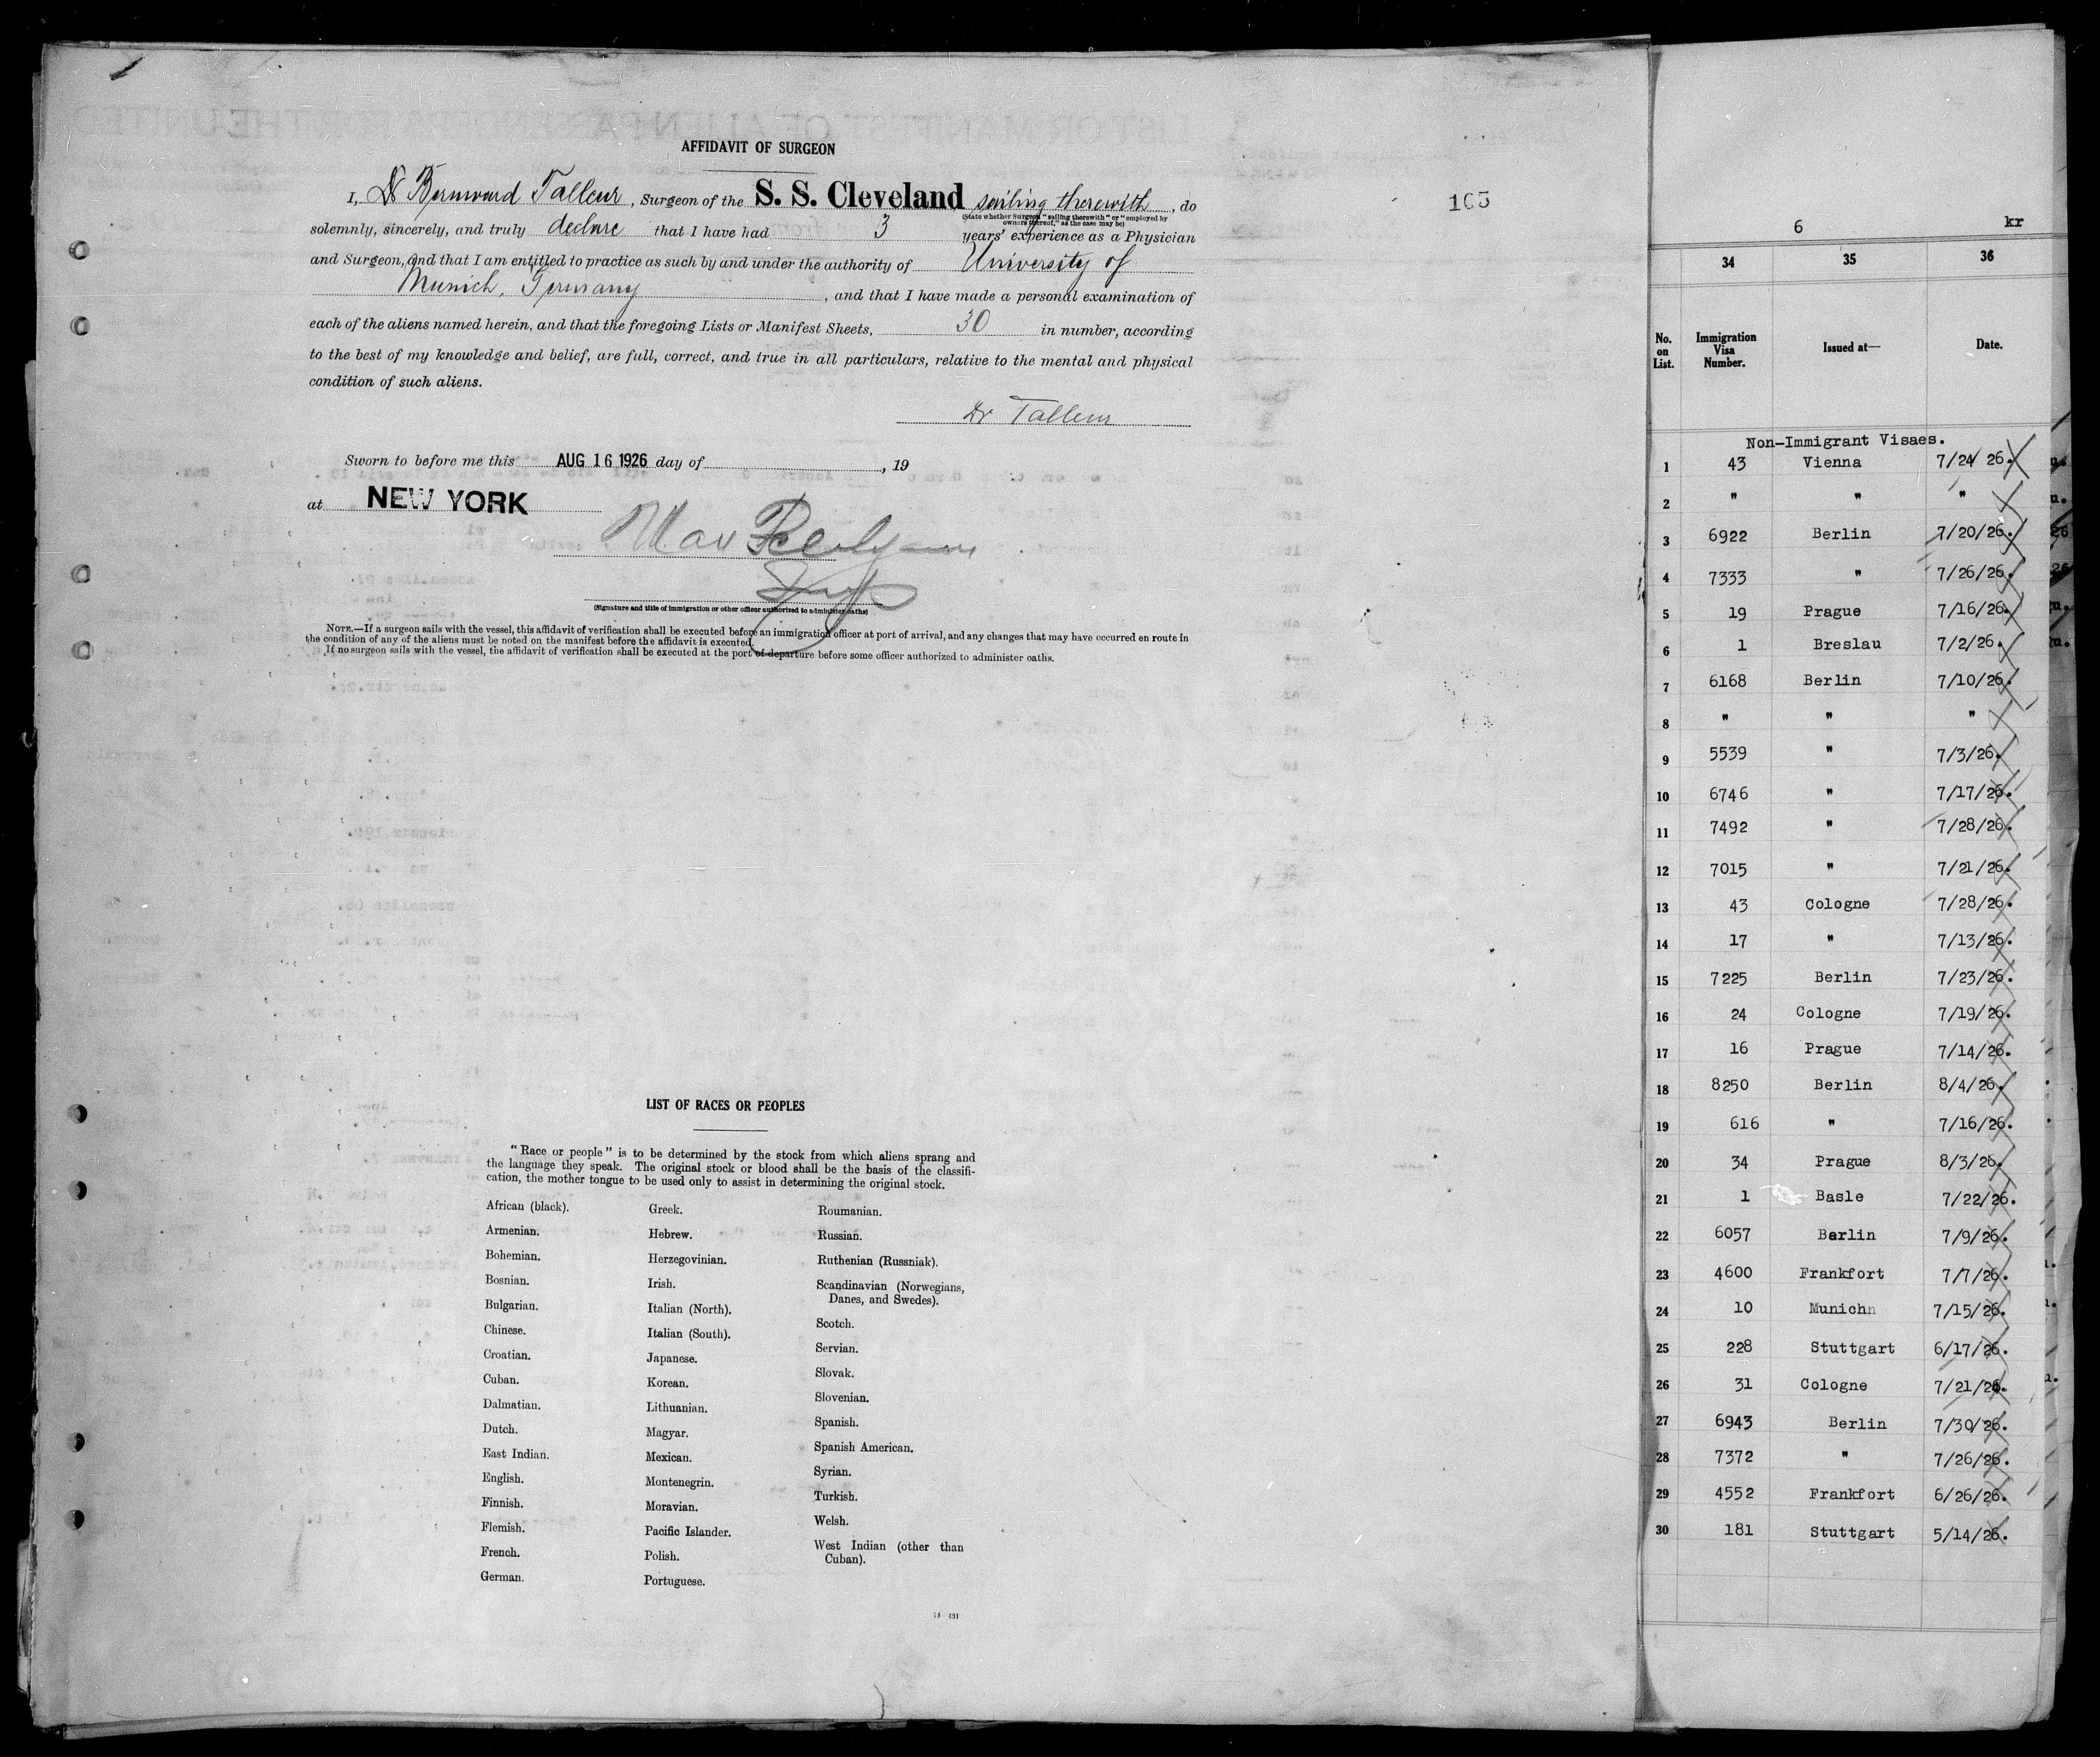 AFFIDAVIT OF SURGEON
I, Dr Bernward Talleur, Surgeon of the S. S. Cleveland sailing therewith, do
(State whether Surgeon "sailing therewith" or "employed by
owners thereof," as the case may be)
solemnly, sincerely, and truly declare that I have had 3 years' experience as a Physician
and Surgeon, and that I am entitled to practice as such by and under the authority of University of
Munich, Germany, and that I have made a personal examination of
each of the aliens named herein, and that the foregoing Lists or Manifest Sheets, 30 in number, according
to the best of my knowledge and belief, are full, correct, and true in all particulars, relative to the mental and physical
condition of such aliens.
Dr Talleur
Sworn to before me this AUG 16 1926 day of , 19
at NEW YORK
Max
(Signature and title of immigration or other officer authorized to administer oaths)
NOTE.—If a surgeon sails with the vessel, this affidavit of verification shall be executed before an immigration officer at port of arrival, and any changes that may have occurred en route in
the condition of any of the aliens must be noted on the manifest before the affidavit is executed.
If no surgeon sails with the vessel, the affidavit of verification shall be executed at the port of departure before some officer authorized to administer oaths.
LIST OF RACES OR PEOPLES
"Race or people" is to be determined by the stock from which aliens sprang and
the language they speak. The original stock or blood shall be the basis of the classifi-
cation, the mother tongue to be used only to assist in determining the original stock.
African (black).
Armenian.
Bohemian.
Bosnian.
Bulgarian.
Chinese.
Croatian.
Cuban.
Dalmatian.
Dutch.
East Indian.
English.
Finnish.
Flemish.
French.
German.
Greek.
Hebrew.
Herzegovinian.
Irish.
Italian (North).
Italian (South).
Japanese.
Korean.
Lithuanian.
Magyar.
Mexican.
Montenegrin.
Moravian.
Pacific Islander.
Polish.
Portuguese.
Roumanian.
Russian.
Ruthenian (Russniak).
Scandinavian (Norwegians,
Danes, and Swedes).
Scotch.
Servian.
Slovak.
Slovenian.
Spanish.
Spanish American.
Syrian.
Turkish.
Welsh.
West Indian (other than
Cuban).
105
6 kr
34 35 36
No. on List. Immigration Visa Number. Issued at— Date.
Non-Immigrant Visaes.
1 43 Vienna 7/24 26
2 " " "
3 6922 Berlin 7/20/26.
4 7333 " 7/26/26.
5 19 Prague 7/16/26.
6 1 Breslau 7/2/26.
7 6168 Berlin 7/10/26.
8 " " "
9 5539 " 7/3/26.
10 6746 " 7/17/26.
11 7492 " 7/28/26.
12 7015 " 7/21/26.
13 43 Cologne 7/28/26.
14 17 " 7/13/26.
15 7225 Berlin 7/23/26.
16 24 Cologne 7/19/26.
17 16 Prague 7/14/26.
18 8250 Berlin 8/4/26.
19 616 " 7/16/26.
20 34 Prague 8/3/26.
21 1 Basle 7/22/26.
22 6057 Berlin 7/9/26.
23 4600 Frankfort 7/7/26.
24 10 Munichn 7/15/26.
25 228 Stuttgart 6/17/26.
26 31 Cologne 7/21/26.
27 6943 Berlin 7/30/26.
28 7372 " 7/26/26.
29 4552 Frankfort 6/26/26.
30 181 Stuttgart 5/14/26.